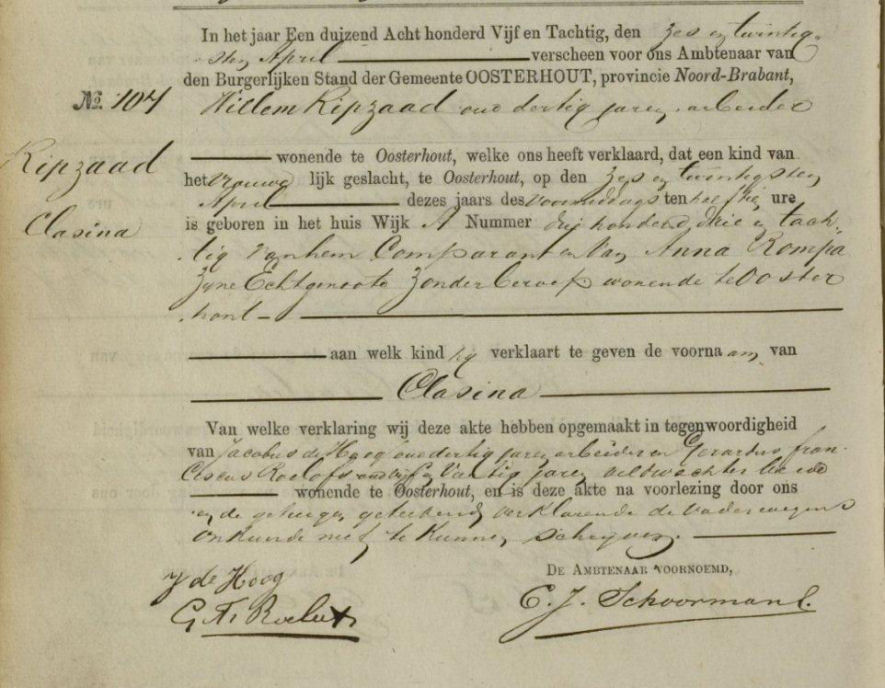 In het jaar Een duizend Acht honderd Vijf en Tachtig, den zes en twintig-
sten April verscheen voor ons Ambtenaar van
den Burgerlijken Stand der Gemeente OOSTERHOUT, provincie Noord-Brabant,
№. 104 Willem Ripzaad oud dertig jaren, arbeider
Ripzaad
Clasina
wonende te Oosterhout, welke ons heeft verklaard, dat een kind van
het vrouwe lijk geslacht, te Oosterhout, op den zes en twintigsten
April dezes jaars des voormiddags ten half tien ure
is geboren in het huis Wijk A Nummer drie honderd drie en tach-
tig van hem Comparant en van Anna Rompa
zyne Echtgenoote zonder beroep wonende te Ooster
hout
aan welk kind hy verklaart te geven de voorna am van
Clasina
Van welke verklaring wij deze akte hebben opgemaakt in tegenwoordigheid
van Jacobus de Hoog oud dertig jaren arbeider en Gerardus Fran-
ciscus Roelofs oud vyf en Veertig jaren veldwachter beide
wonende te Oosterhout, en is deze akte na voorlezing door ons
en de getuigen geteekend, verklarende de vader wegens
onkunde niet te kunnen schryven.
J de Hoog
G. Fr. Roelofs
DE AMBTENAAR VOORNOEMD,
C. J. Schoormans.